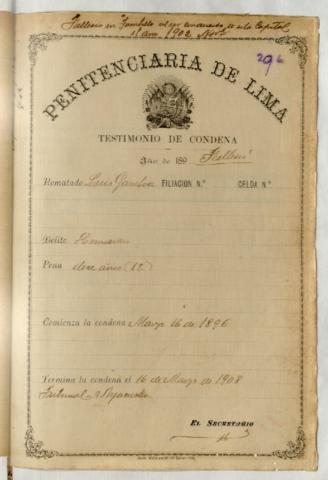 Falleció en
el año 1902
296
PENITENCIARIA DE LIMA
TESTIMONIO DE CONDENA
Año de 189 Falleció
Rematado Luis Gamboa FILIACION N.° CELDA N.°
Delito Homicidio
Pena doce años (12)
Comienza la condena Mayo 16 de 1896
Termina la condena el 16 de Mayo de 1908
Tribunal de Ayacucho
EL SECRETARIO